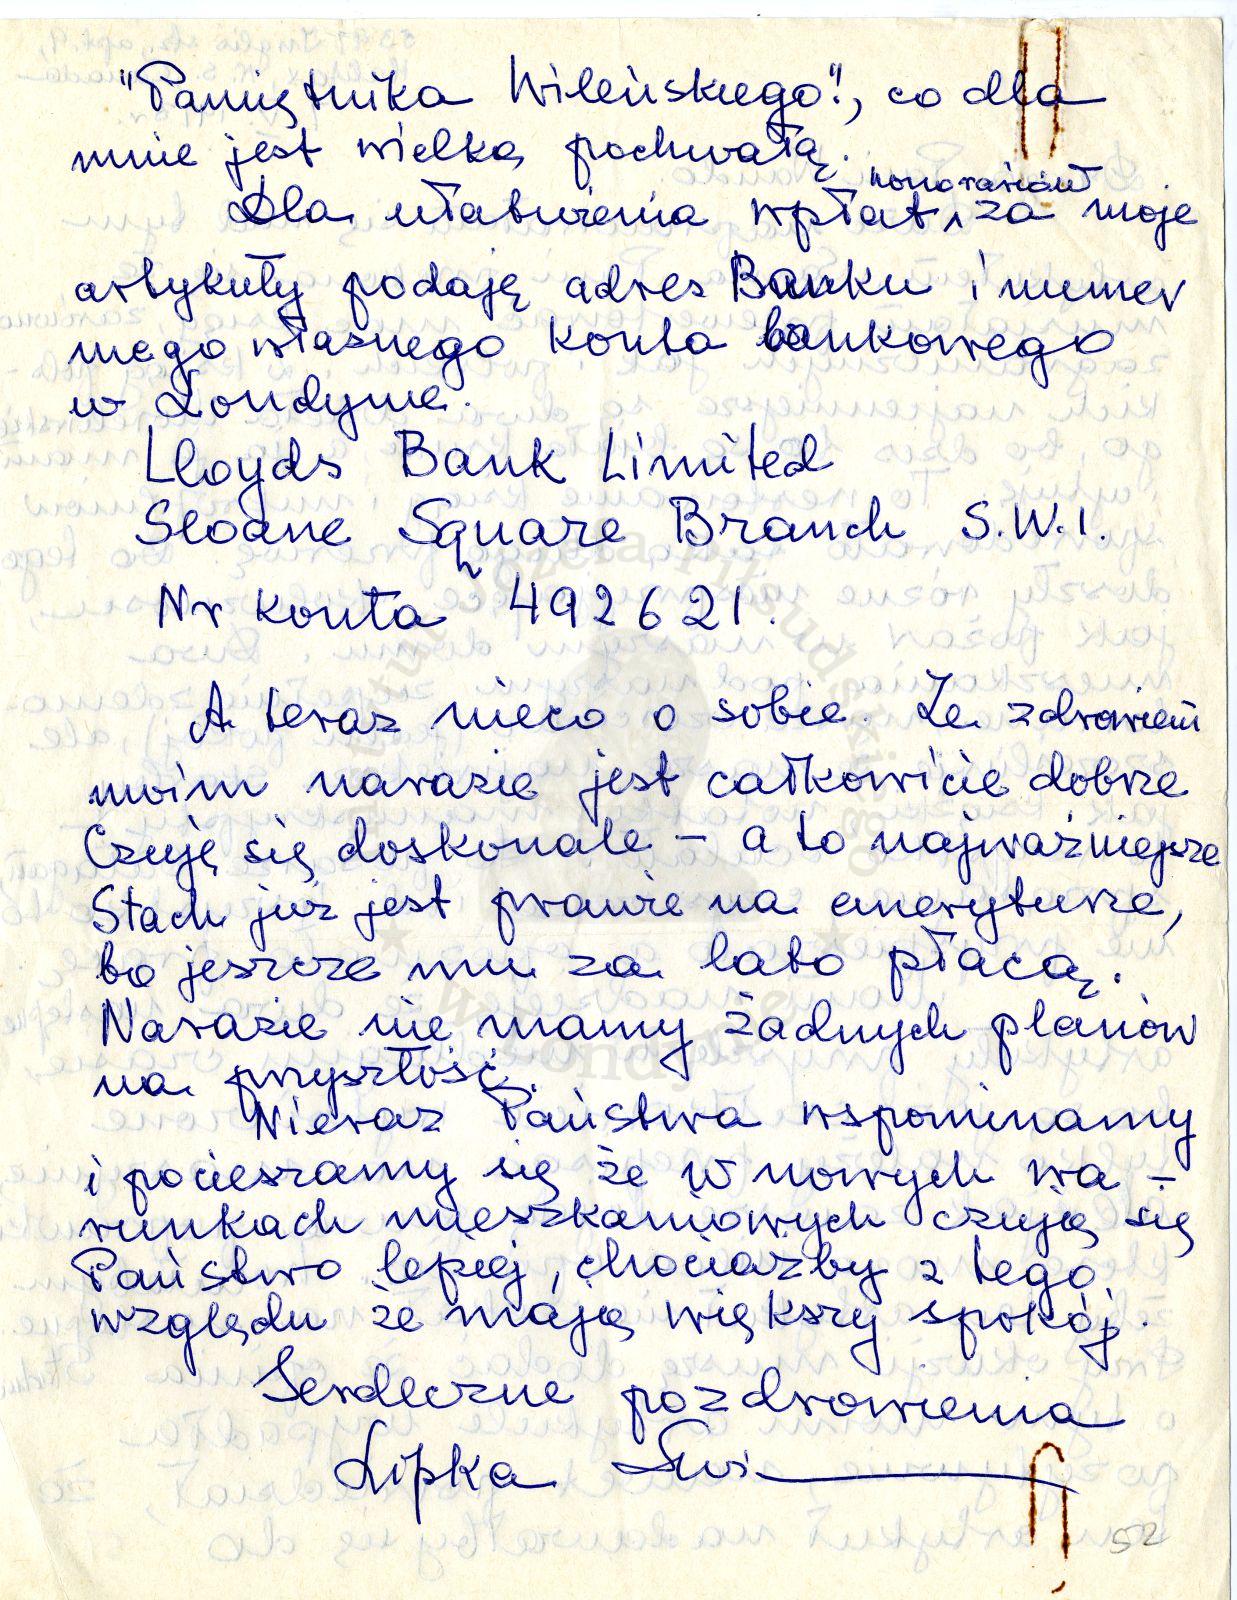 "Pamiętnika Wileńskiego", co dla
mnie jest wielką pochwałą.
Dla ułatwienia wpłat honorariów za moje
artykuły podaję adres Banku i numer
mego własnego konta bankowego
w Londynie.
Lloyds Bank Limited
Sloane Square Branch S.W.1.
Nr konta 492621.
A teraz nieco o sobie. Ze zdrowiem
moim narazie jest całkowicie dobrze
Czuję się doskonale – a to najważniejsze
Stach już jest prawie na emeryturze,
bo jeszcze mu za lato płacą.
Narazie nie mamy żadnych planów
na przyszłość.
Nieraz Państwa wspominamy
i pocieszamy się że w nowych wa-
runkach mieszkaniowych czują się
Państwo lepiej, chociażby z tego
względu że mają większy spokój.
Serdeczne pozdrowienia
Lipka
52
Instytut Józefa Piłsudskiego
w Londynie